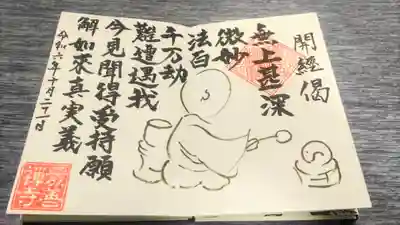 開經偈
無上甚深
微妙
法百
千万劫
難遭遇我
今見聞得受持願
解如来真実義
令和六年十月二十一日